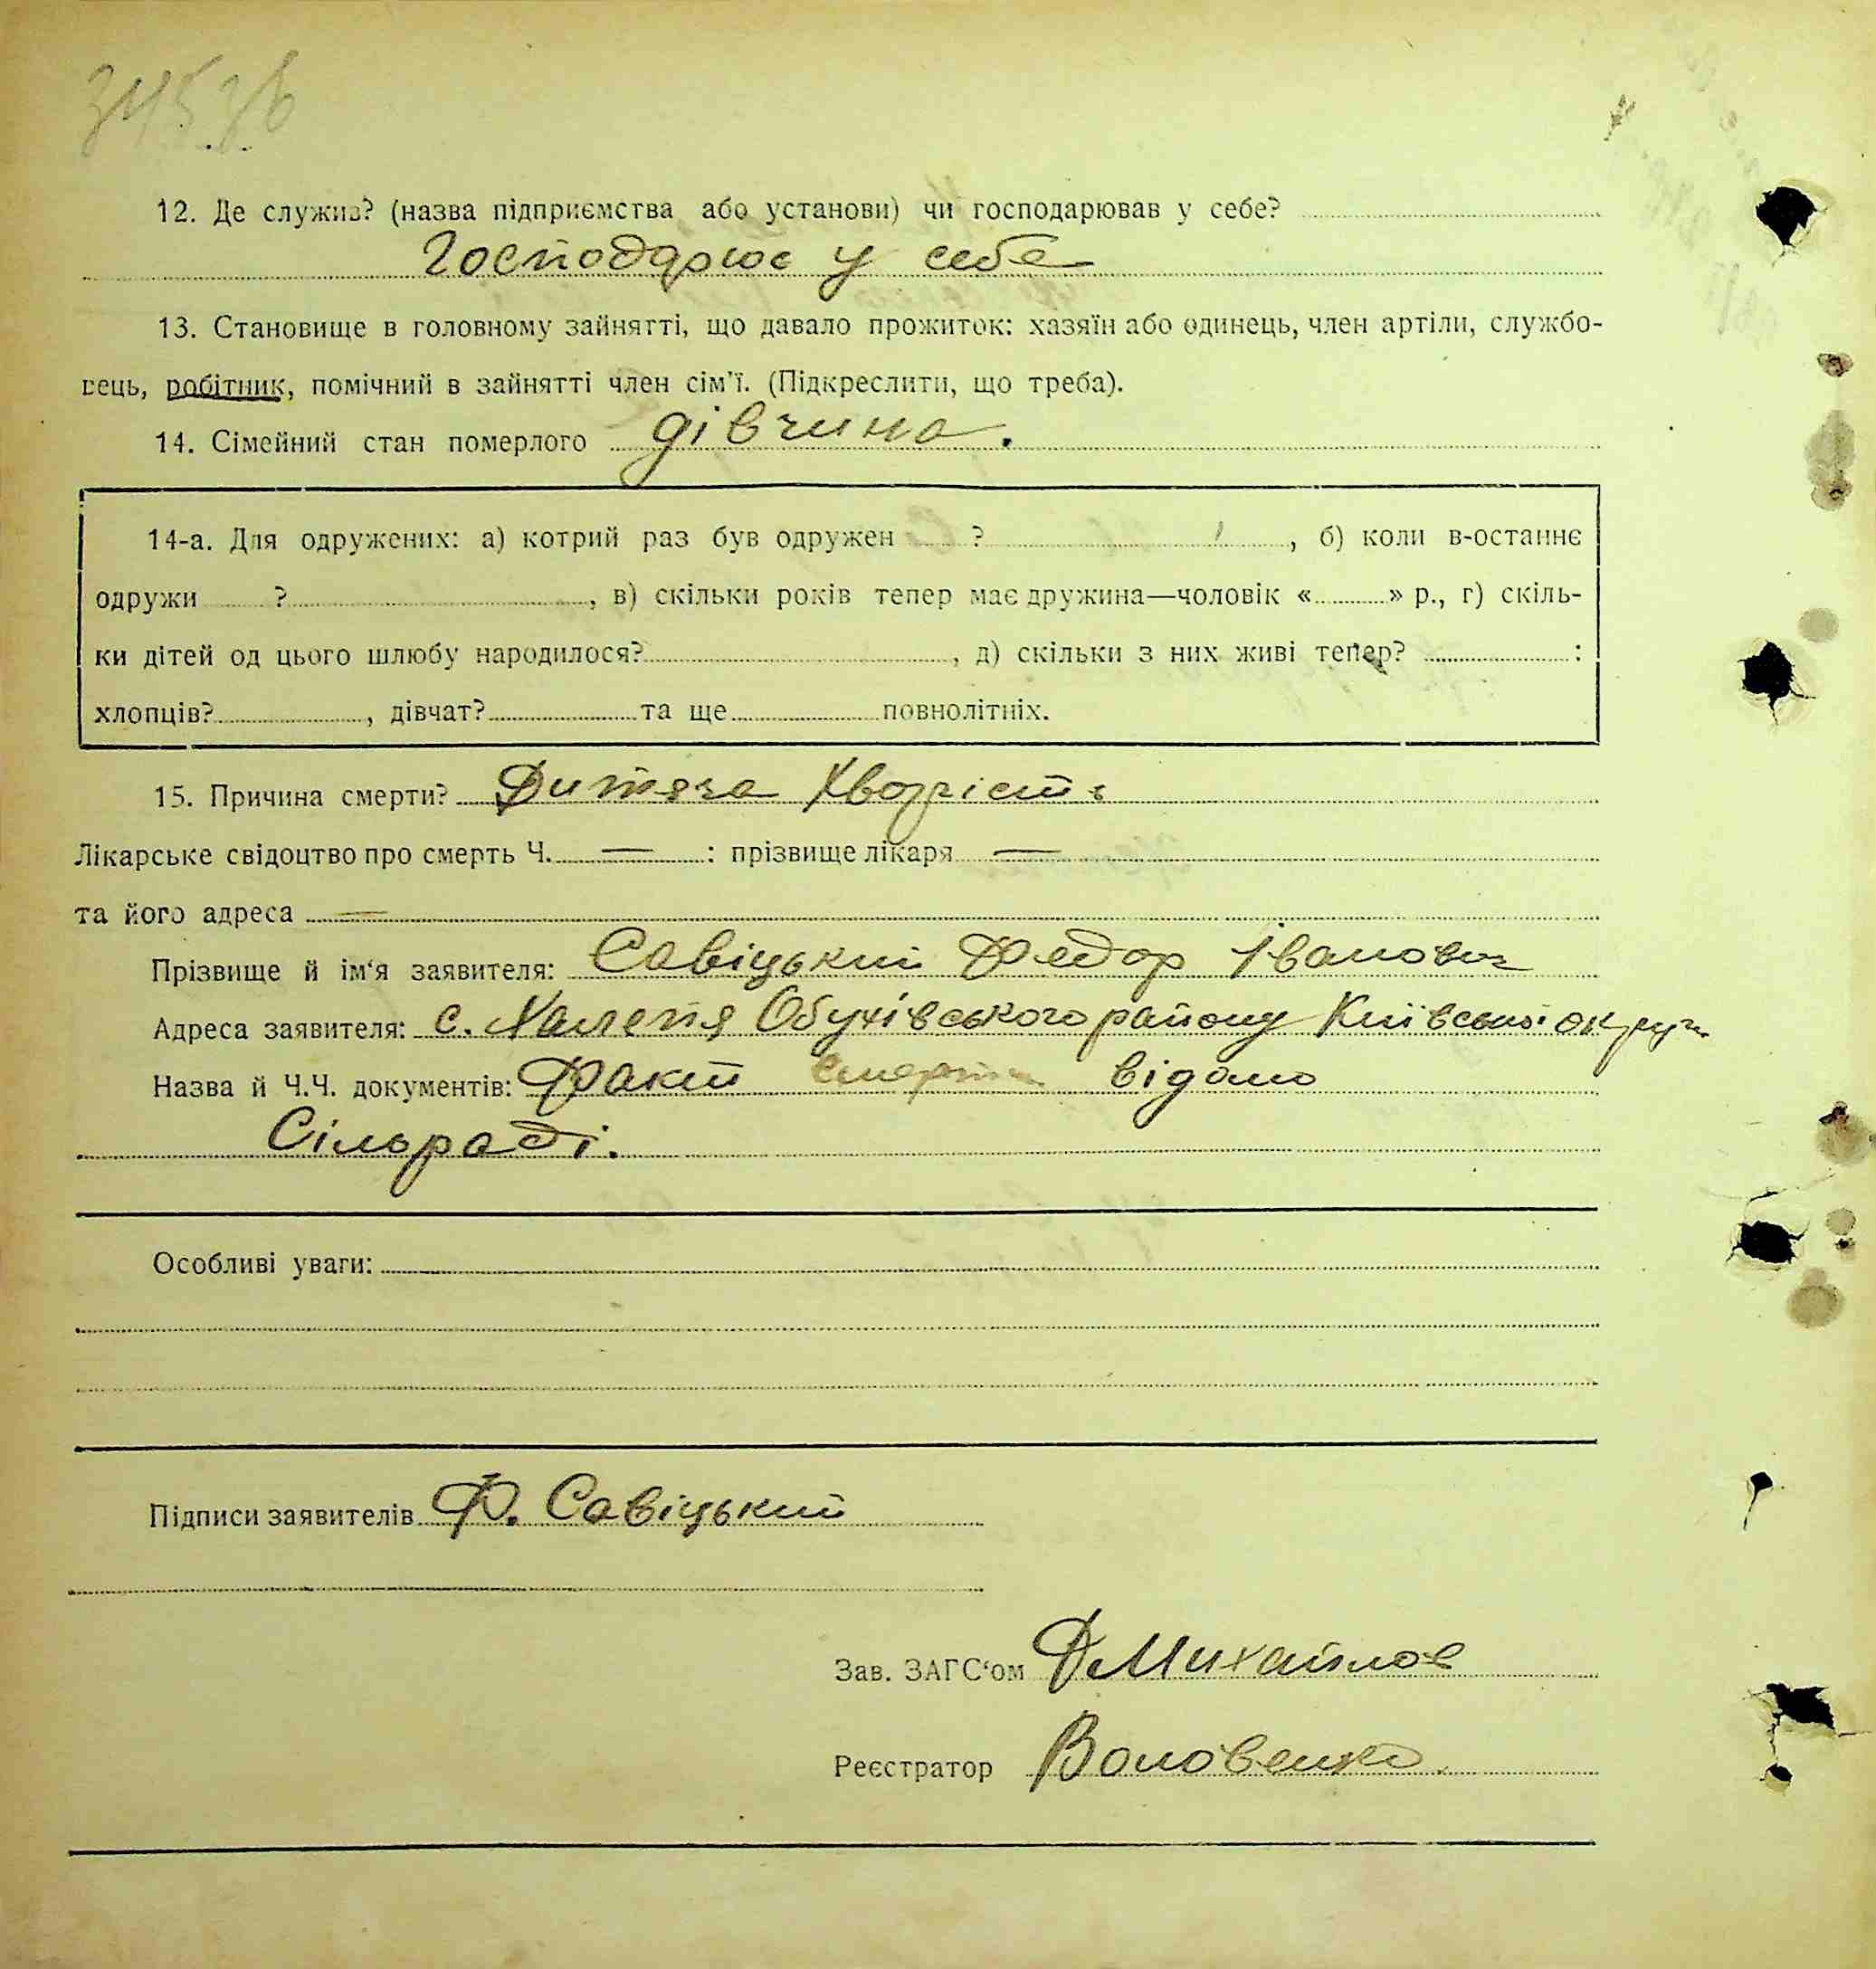 34536
12. Де служив? (назва підприємства або установи) чи господарював у себе?
Господарює у себе
13. Становище в головному зайнятті, що давало прожиток: хазяїн або одинець, член артіли, службо-
вець, робітник, помічний в зайнятті член сім'ї. (Підкреслити, що треба).
14. Сімейний стан померлого дівчина.
14-а. Для одружених: а) котрий раз був одружен ?, б) коли в-останнє
одружи ?, в) скільки років тепер має дружина—чоловік « » р., г) скіль-
ки дітей од цього шлюбу народилося?, д) скільки з них живі тепер? :
хлопців?, дівчат? та ще повнолітніх.
15. Причина смерти? Дитяча Хворість
Лікарське свідоцтво про смерть Ч. — : прізвище лікаря —
та його адреса —
Прізвище й ім'я заявителя: Савіцький Федор Іванович
Адреса заявителя: с. Халепя Обухівського району Київської округи
Назва й Ч.Ч. документів: Факт смерти відомо
Сільраді.
Особливі уваги:
Підписи заявителів Ф. Савіцький
Зав. ЗАГС'ом Михайлов
Реєстратор Воловенко